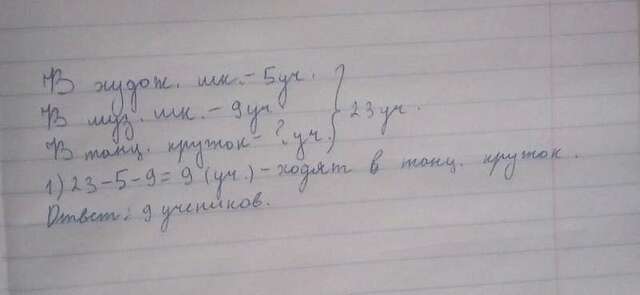 В худож. шк. - 5 уч.
В муз. шк. - 9 уч } 23 уч.
В танц. кружок - ? уч.
1) 23 - 5 - 9 = 9 (уч.) - ходят в танц. кружок.
Ответ: 9 учеников.